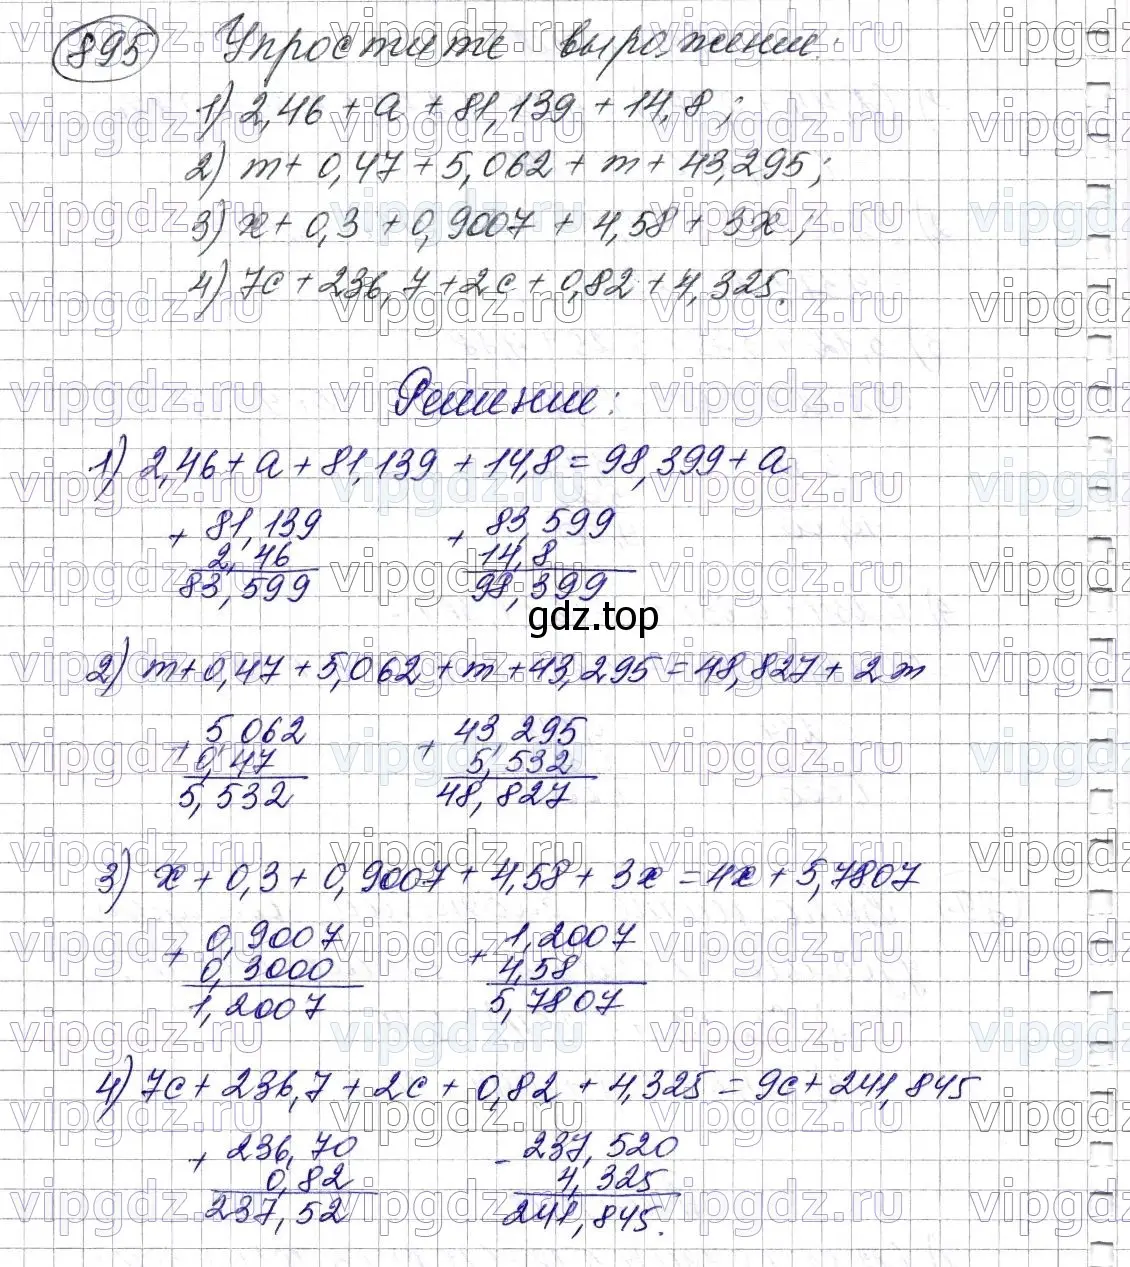 895 Упростите выражение:
1) 2,46 + a + 81,139 + 14,8;
2) m + 0,47 + 5,062 + m + 43,295;
3) x + 0,3 + 0,9007 + 4,58 + 3x;
4) 7c + 236,7 + 2c + 0,82 + 4,325.
Решение:
1) 2,46 + a + 81,139 + 14,8 = 98,399 + a
+ 81,139 + 83,599
2,46 14,8
83,599 98,399
gdz.top
2) m + 0,47 + 5,062 + m + 43,295 = 48,827 + 2m
+ 5,062 + 43,295
0,47 5,532
5,532 48,827
3) x + 0,3 + 0,9007 + 4,58 + 3x = 4x + 5,7807
+ 0,9007 + 1,2007
0,3000 4,58
1,2007 5,7807
4) 7c + 236,7 + 2c + 0,82 + 4,325 = 9c + 241,845
+ 236,70 - 237,520
0,82 4,325
237,52 241,845.
vipgdz.ru